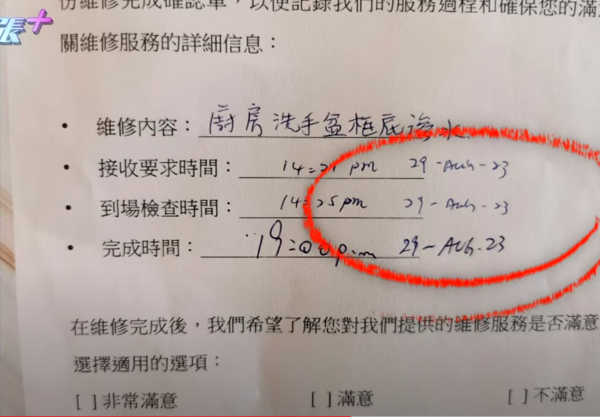 份維修完成確認單，以便記錄我們的服務過程和確保您的滿
張+
關維修服務的詳細信息：
• 維修內容：廚房洗手盆框底滲水
• 接收要求時間：14:21 pm 29-AUG-23
• 到場檢查時間：14:25 pm 29-AUG-23
• 完成時間：19:00 p.m 29-AUG-23
在維修完成後，我們希望了解您對我們提供的維修服務是否滿意
選擇適用的選項：
[ ] 非常滿意 [ ] 滿意 [ ] 不滿意